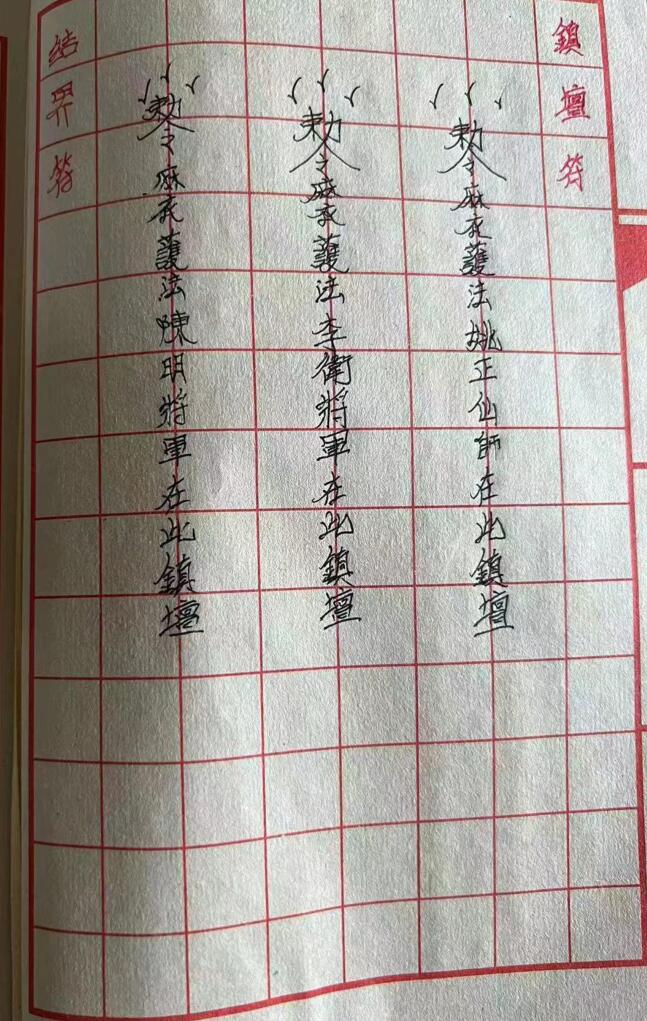 鎮壇符
勅令麻衣護法姚正仙師在此鎮壇
勅令麻衣護法李衛將軍在此鎮壇
勅令麻衣護法陳明將軍在此鎮壇
結界符